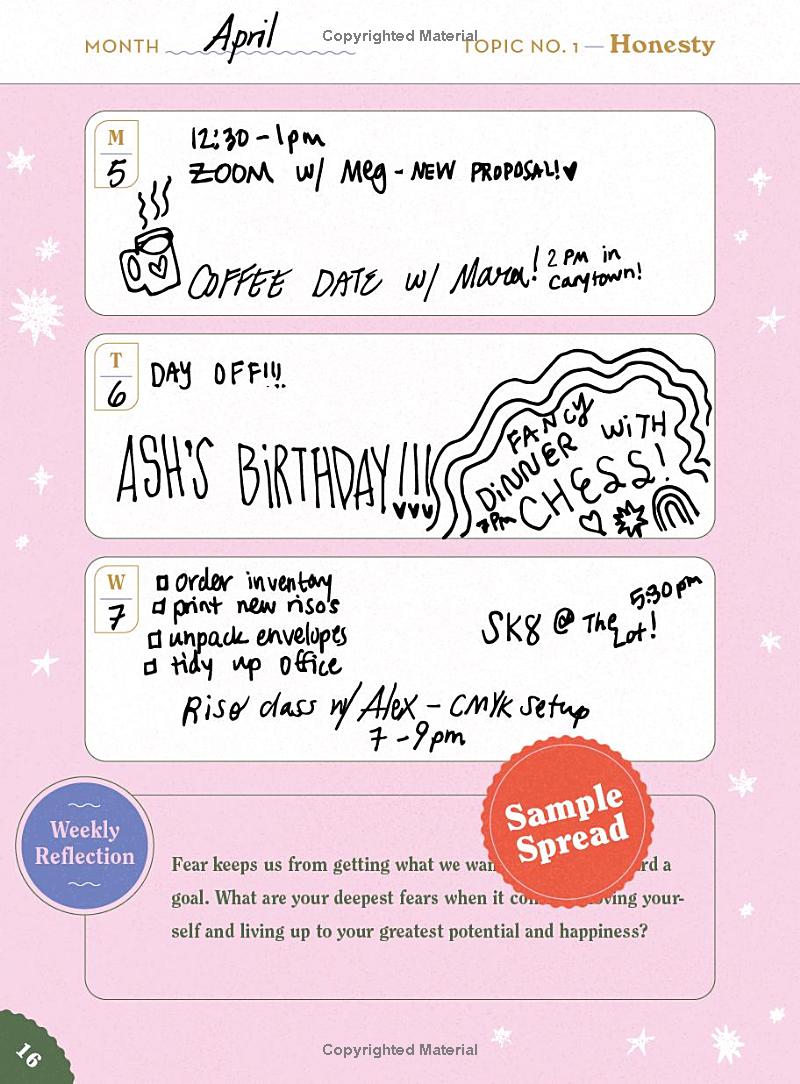 MONTH April
Copyrighted Material
TOPIC NO. 1 — Honesty
M
5
12:30 - 1pm
ZOOM w/ Meg - NEW PROPOSAL! ♥
COFFEE DATE w/ Mara! 2 PM in
Carytown!
T
6
DAY OFF!!!
ASH'S BIRTHDAY!!!
FANCY
DINNER WITH
7PM CHESS!
W
7
order inventory
print new riso's
unpack envelopes
tidy up office
SK8 @ The Lot! 5:30pm
Riso class w/ Alex - CMYK setup
7 - 9pm
Sample
Spread
Weekly
Reflection
Fear keeps us from getting what we a
goal. What are your deepest fears when it your-
self and living up to your greatest potential and happiness?
16
Copyrighted Material